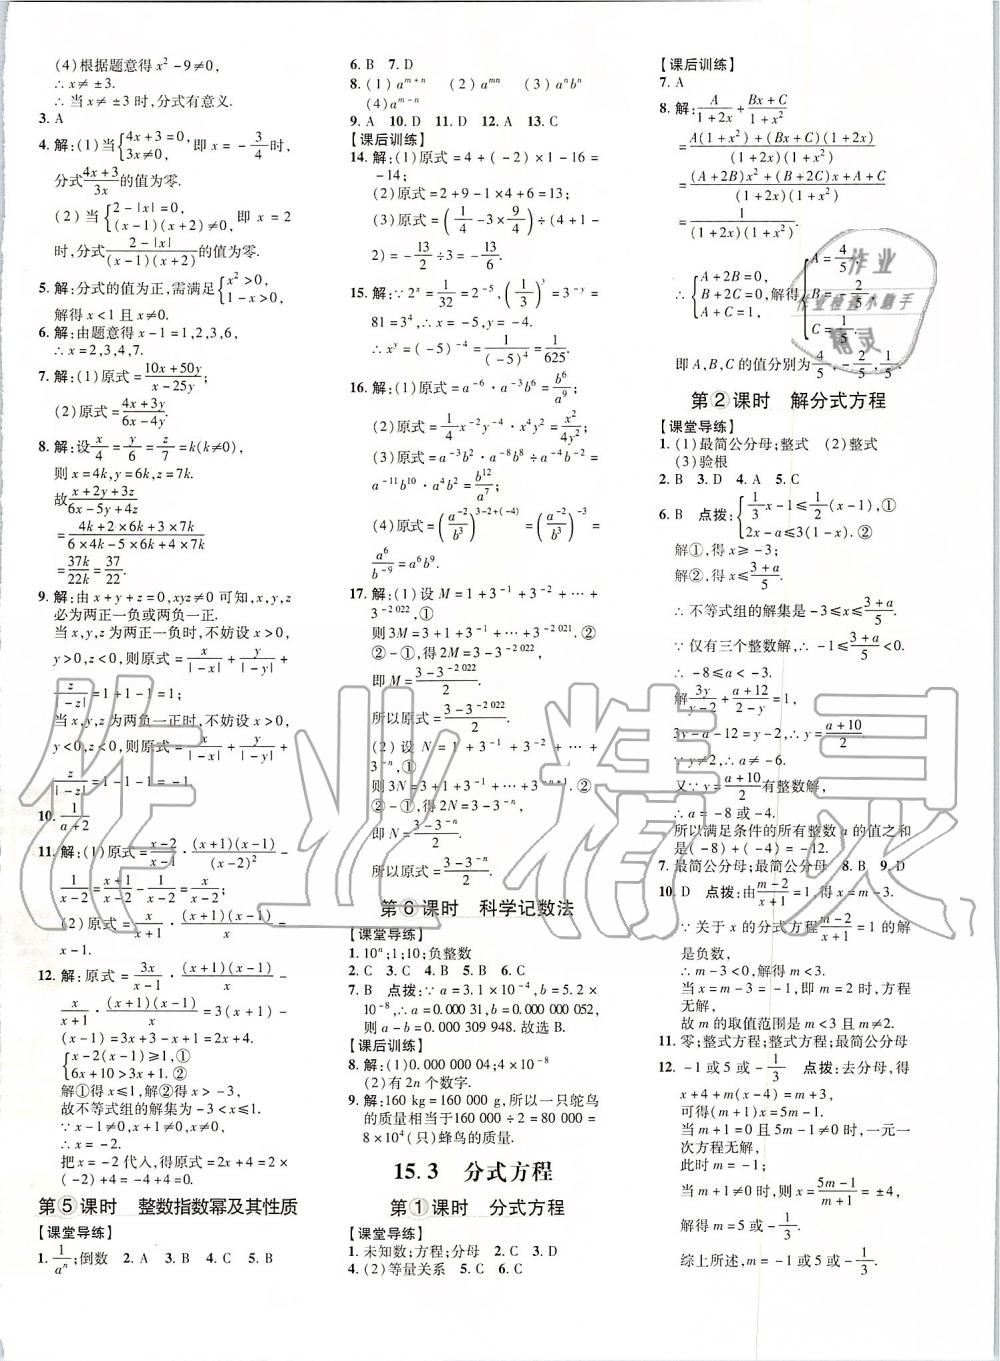 (4)根据题意得 x²-9≠0,
∴x≠±3.
∴当 x≠±3 时,分式有意义.
3. A
4. 解:(1)当{4x+3=0, x≠0, 即 x=-3/4时,
分式(4x+3)/3x的值为零.
(2)当{2-|x|=0, (x-1)(x+2)≠0, 即 x=2
时,分式(2-|x|)/((x-1)(x+2))的值为零.
5. 解:分式的值为正,需满足{x²>0, 1-x>0,
解得 x<1 且 x≠0.
6. 解:由题意得 x-1=1,2,3,6,
∴x=2,3,4,7.
7. 解:(1)原式=(10x+50y)/(x-25y);
(2)原式=(4x+3y)/(6x-4y).
8. 解:设x/4=y/6=z/7=k(k≠0),
则 x=4k,y=6k,z=7k.
故(x+2y+3z)/(6x-5y+4z)
=(4k+2×6k+3×7k)/(6×4k-5×6k+4×7k)
=37k/22k=37/22.
9. 解:由 x+y+z=0,xyz≠0 可知,x,y,z
必为两正一负或两负一正.
当 x,y,z 为两正一负时,不妨设 x>0,
y>0,z<0,则原式=x/|-x|+y/|-y|+
z/|-z|=1+1-1=1;
当 x,y,z 为两负一正时,不妨设 x>0,
y<0,z<0,则原式=x/|-x|+y/|-y|+
z/|-z|=1-1-1=-1.
10. 1/(a+2)
11. 解:(1)原式=(x-2)/(x-1)·(x+1)(x-1)/(x-2)²-
1/(x-2)=(x+1)/(x-2)-1/(x-2)=x/(x-2).
(2)原式=x/(x+1)·(x+1)(x-1)/x=
x-1.
12. 解:原式=3x/(x-1)·(x+1)(x-1)/x-
x/(x+1)·(x+1)(x-1)/x=3(x+1)-
(x-1)=2x+4.
{x-2(x-1)≥1,①
6x+10>3x+1.②
解①得 x≤1,解②得 x>-3,
故不等式组的解集为-3<x≤1.
∵x-1≠0,x+1≠0,x≠0,
∴x=-2.
把 x=-2 代入,得原式=2x+4=2×
(-2)+4=0.
第⑤课时 整数指数幂及其性质
【课堂导练】
1. 1/aⁿ;倒数 2. A 3. B 4. C 5. B
6. B 7. D
8. (1)a^(m+n) (2)a^(mn) (3)aⁿbⁿ
(4)a^(m-n)
9. A 10. D 11. D 12. A 13. C
【课后训练】
14. 解:(1)原式=4+(-2)×1-16=
-14;
(2)原式=2+9-1×4+6=13;
(3)原式=(1/4-3×9/4)÷(4+1-
2)=-13/2÷3=-13/6.
15. 解:∵2^x=1/32=2^(-5),(1/3)^y=
81=3⁴,∴x=-5,y=-4.
∴x^y=(-5)^(-4)=1/(-5)⁴=1/625.
16. 解:(1)原式=a^(-6)·a^(-3)b⁶=b⁶/a⁹;
(2)原式=1/4x^(-2)y^(-4)·x⁴y²=x²/4y²;
(3)原式=a^(-3)b²·a^(-8)b⁸÷a^(-4)b^(-2)=
a^(-11)b^(10)·a⁴b²=b^(12)/a⁷;
(4)原式=(a^(-2)/b³)^(3-2+(-4))=(a^(-2)/b³)^(-3)=
a⁶/b^(-9)=a⁶b⁹.
17. 解:(1)设 M=1+3^(-1)+3^(-2)+…+
3^(-2 022),①
则 3M=3+1+3^(-1)+…+3^(-2 021).②
②-①,得 2M=3-3^(-2 022),
即 M=(3-3^(-2 022))/2.
所以原式=(3-3^(-2 022))/2.
(2)设 N=1+3^(-1)+3^(-2)+…+
3^(-n),①
则 3N=3+1+3^(-1)+…+3^(-n+1).②
②-①,得 2N=3-3^(-n),
即 N=(3-3^(-n))/2.
所以原式=(3-3^(-n))/2.
第⑥课时 科学记数法
【课堂导练】
1. 10ⁿ;1;10;负整数
2. C 3. C 4. B 5. B 6. C
7. B 点拨:∵a=3.1×10^(-4),b=5.2×
10^(-8),∴a=0.000 31,b=0.000 000 052,
则 a-b=0.000 309 948.故选 B.
【课后训练】
8. 解:(1)0.000 000 04;4×10^(-8)
(2)有 2n 个数字.
9. 解:160 kg=160 000 g,所以一只鸵鸟
的质量相当于 160 000÷2=80 000=
8×10⁴(只)蜂鸟的质量.
15.3 分式方程
第①课时 分式方程
【课堂导练】
1. 未知数;方程;分母 2. C 3. D
4. (2)等量关系 5. C 6. C
【课后训练】
7. A
8. 解:A/(1+2x)+(Bx+C)/(1+x²)
=(A(1+x²)+(Bx+C)(1+2x))/((1+2x)(1+x²))
=((A+2B)x²+(B+2C)x+A+C)/((1+2x)(1+x²))
=1/((1+2x)(1+x²)),
∴{A+2B=0, B+2C=0, A+C=1, 解得{A=4/5, B=-2/5, C=1/5.
即 A,B,C 的值分别为4/5,-2/5,1/5.
第②课时 解分式方程
【课堂导练】
1. (1)最简公分母;整式 (2)整式
(3)验根
2. B 3. D 4. A 5. C
6. B 点拨:{1/3x-1≤1/2(x-1),①
2x-a≤3(1-x).②
解①,得 x≥-3;
解②,得 x≤(3+a)/5.
∴不等式组的解集是-3≤x≤(3+a)/5.
∵仅有三个整数解,∴-1≤(3+a)/5<0.
∴-8≤a<-3.
解3y/(y-2)+(a+12)/(2-y)=1,
3y-a-12=y-2,∴y=(a+10)/2.
∵y≠2,∴a≠-6.
又∵y=(a+10)/2有整数解,
∴a=-8或-4.
所以满足条件的所有整数 a 的值之和
是(-8)+(-4)=-12.
7. 最简公分母;最简公分母 8. B 9. D
10. D 点拨:由(m-2)/(x+1)=1,得 x=m-3.
∵关于 x 的分式方程(m-2)/(x+1)=1 的解
是负数,
∴m-3<0,解得 m<3.
当 x=m-3=-1,即 m=2 时,方程
无解,
故 m 的取值范围是 m<3 且 m≠2.
11. 零;整式方程;整式方程;最简公分母
12. -1 或 5 或-1/3 点拨:去分母,得
x+4+m(x-4)=m+3,
可得(m+1)x=5m-1.
当 m+1=0 即 m=-1 时,一元一
次方程无解,
此时 m=-1;
当 m+1≠0 时,则 x=(5m-1)/(m+1)=±4,
解得 m=5 或-1/3.
综上所述,m=-1 或 5 或-1/3.
作业精灵
作业
作业检查小助手
精灵